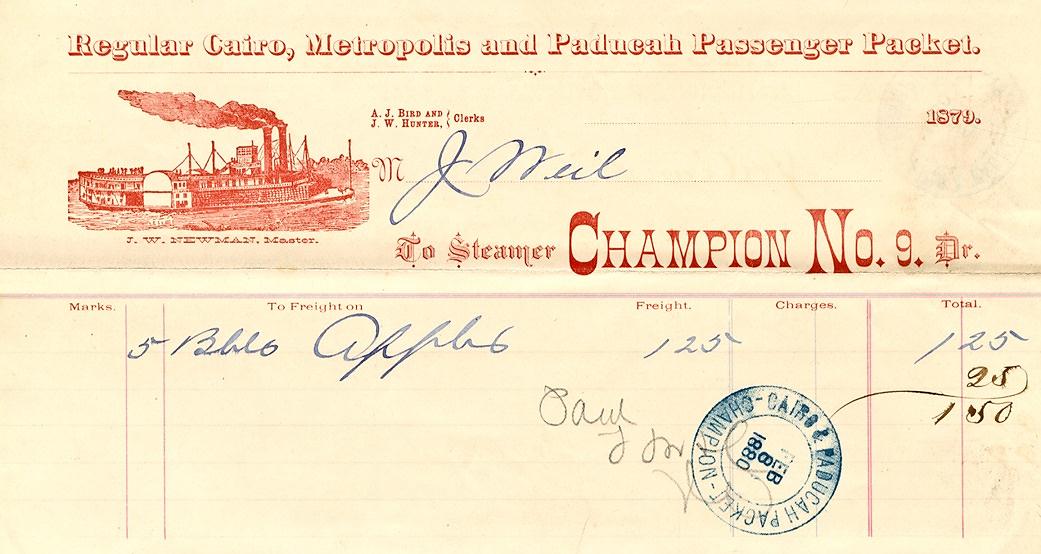 Regular Cairo, Metropolis and Paducah Passenger Packet.
A. J. BIRD AND
J. W. HUNTER, { Clerks
1879.
M J Weil
J. W. NEWMAN, Master.
To Steamer CHAMPION No. 9. Dr.
Marks. To Freight on Freight. Charges. Total.
5 Bbls Apples 125 125
25
150
CAIRO & PADUCAH PACKET-CHAMPION-NO-9
FEB
8
1880